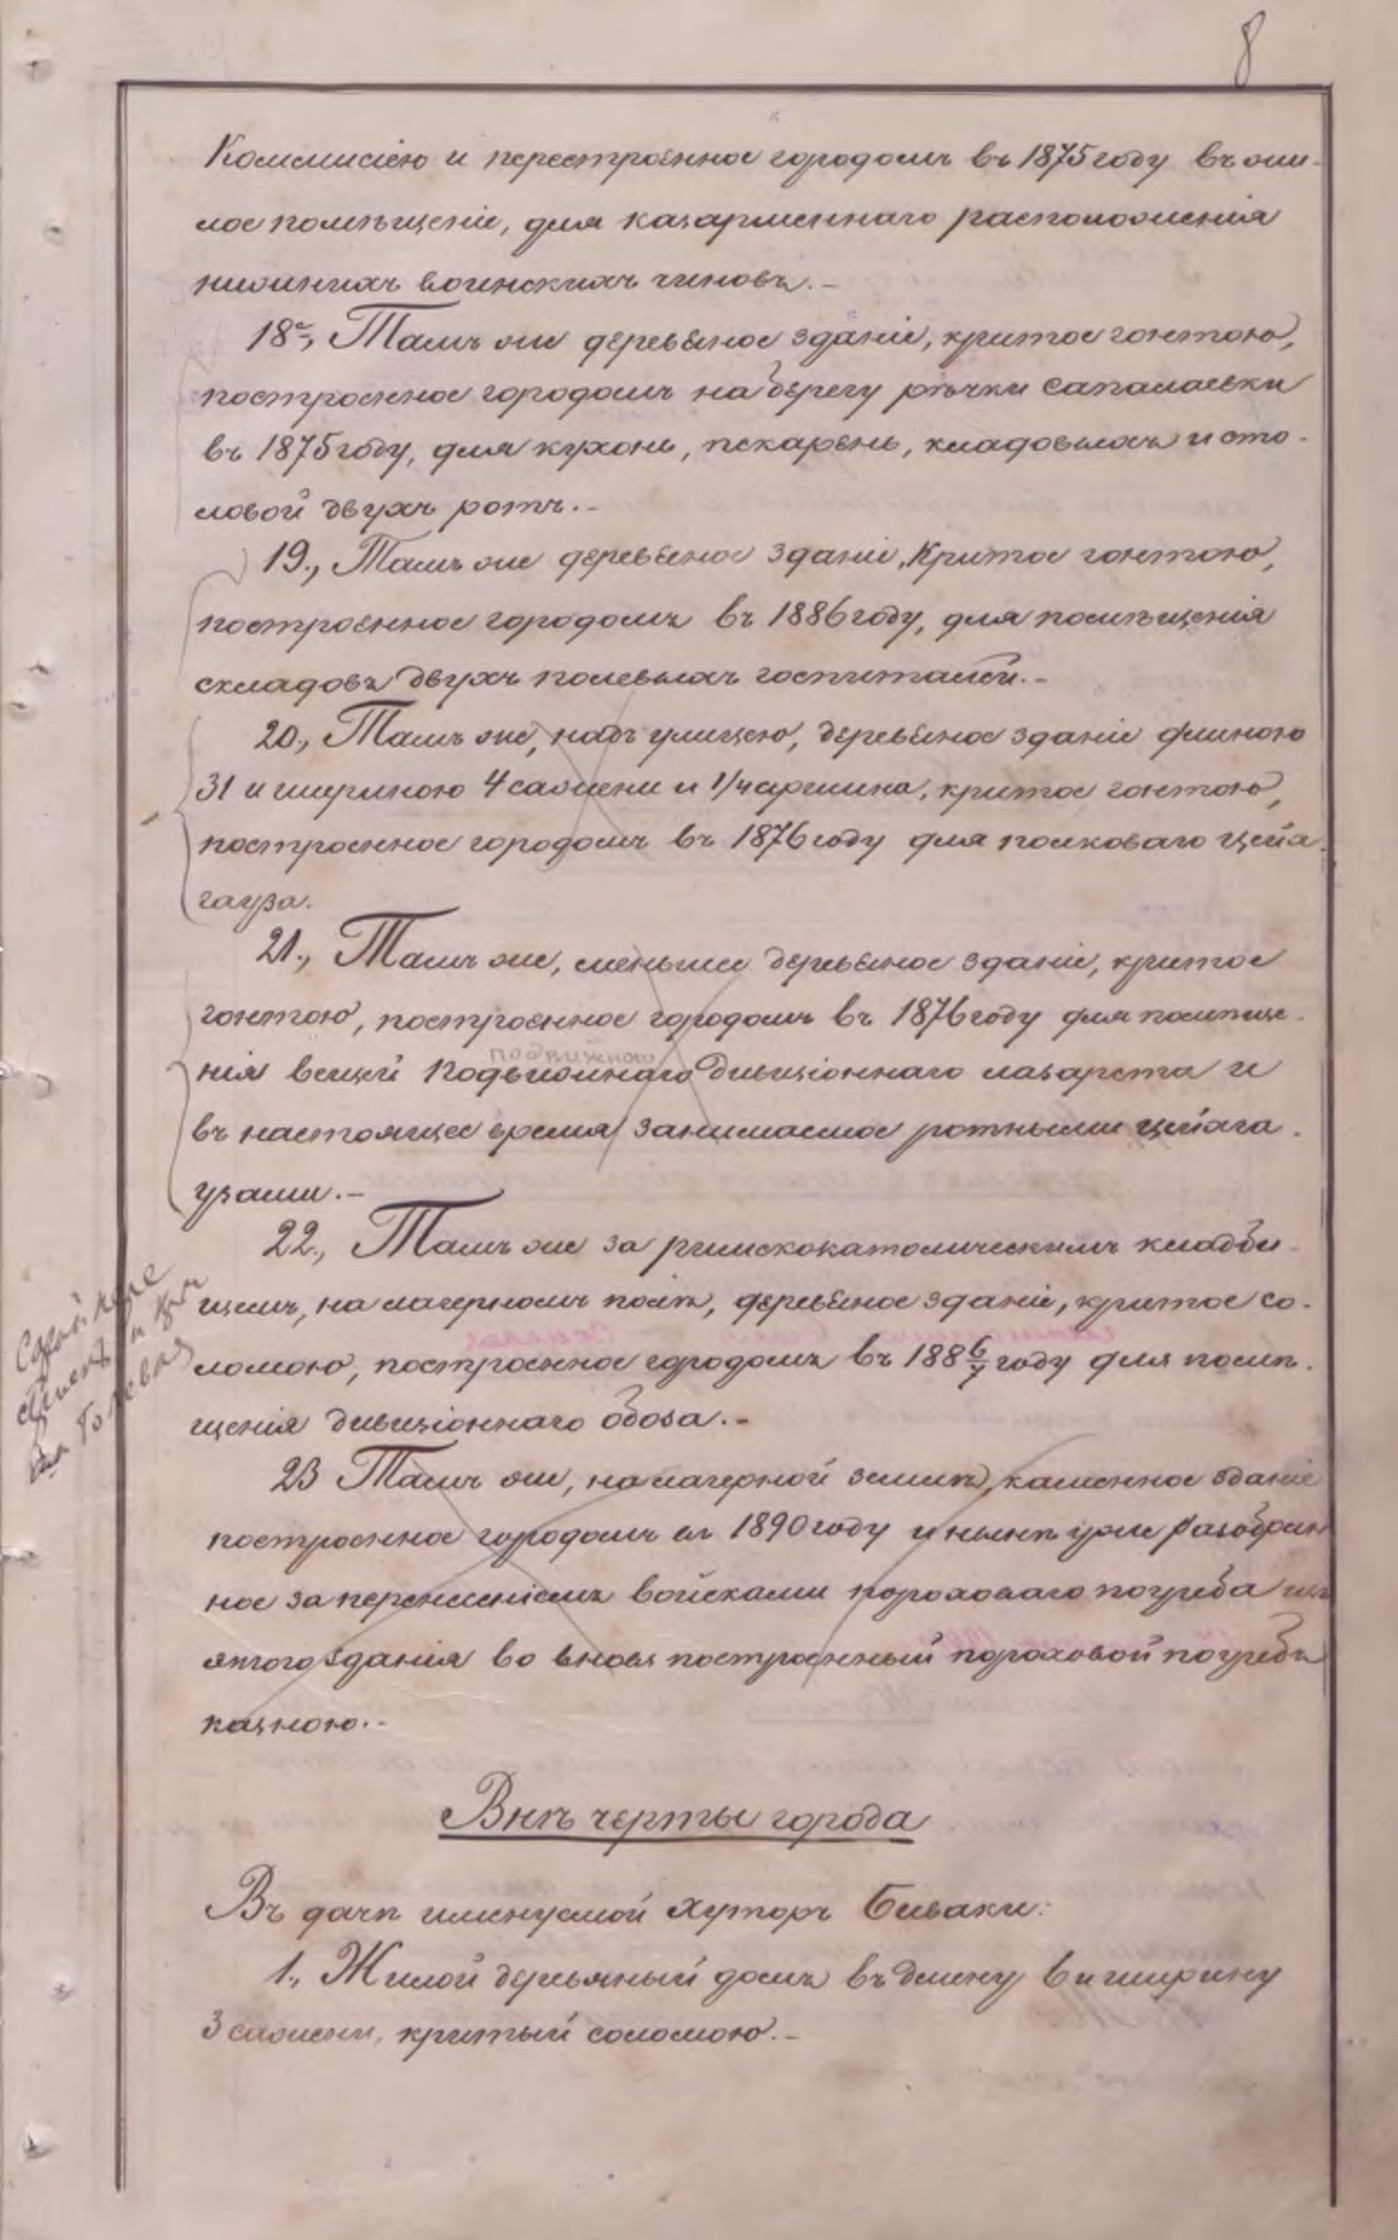 8
Комисіею и перестроенное городомъ въ 1875 году въ жи-
лое помѣщеніе, для казарменнаго расположенія
нижнихъ воинскихъ чиновъ.-
18., Тамъ же деревяное зданіе, критое гонтою,
построенное городомъ на берегу рѣчки Сапалаевки
въ 1875 году, для кухонь, пекарень, кладовыхъ и сто-
ловой двухъ ротъ.-
19., Тамъ же деревяное зданіе, критое гонтою,
построенное городомъ въ 1886 году, для помѣщенія
складовъ двухъ полевыхъ госпиталей.-
20., Тамъ же, надъ улицею, деревяное зданіе длиною
31 и шириною 4 сажени и 1/4 аршина, критое гонтою,
построенное городомъ въ 1876 году для полковаго цейх-
гауза.
21., Тамъ же, меньшее деревяное зданіе, критое
гонтою, построенное городомъ въ 1876 году для помѣще-
подвижного
нія вещей Подвижнаго дивизіоннаго лазарета и
въ настоящее время занимаемое ротными цейхга-
узами.-
22., Тамъ же за римскокатолическимъ кладби-
щемъ, на лагерномъ полѣ, деревяное зданіе, критое со-
ломою, построенное городомъ въ 188 6/7 году для помѣ-
щенія дивизіоннаго обоза.-
23 Тамъ же, на лагерной землѣ, каменное зданіе
построенное городомъ въ 1890 году и нынѣ уже разобран
ное за перенесеніемъ войсками пороховаго погреба изъ
этого зданія во вновь построенный пороховой погребъ
казною.-
Внѣ черты города
Въ дачѣ именуемой Хуторъ Биваки:
1., Жилой деревяный домъ въ длину 6 и ширину
3 сажени, критый соломою.-